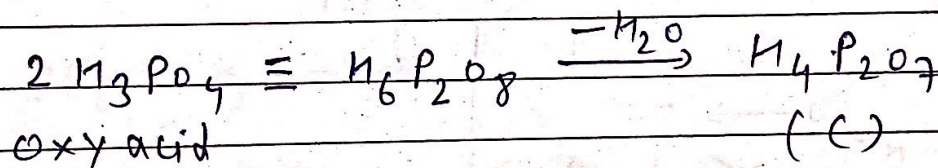 2 H₃PO₄ ≡ H₆P₂O₈ —H₂O→ H₄P₂O₇
oxyacid (C)